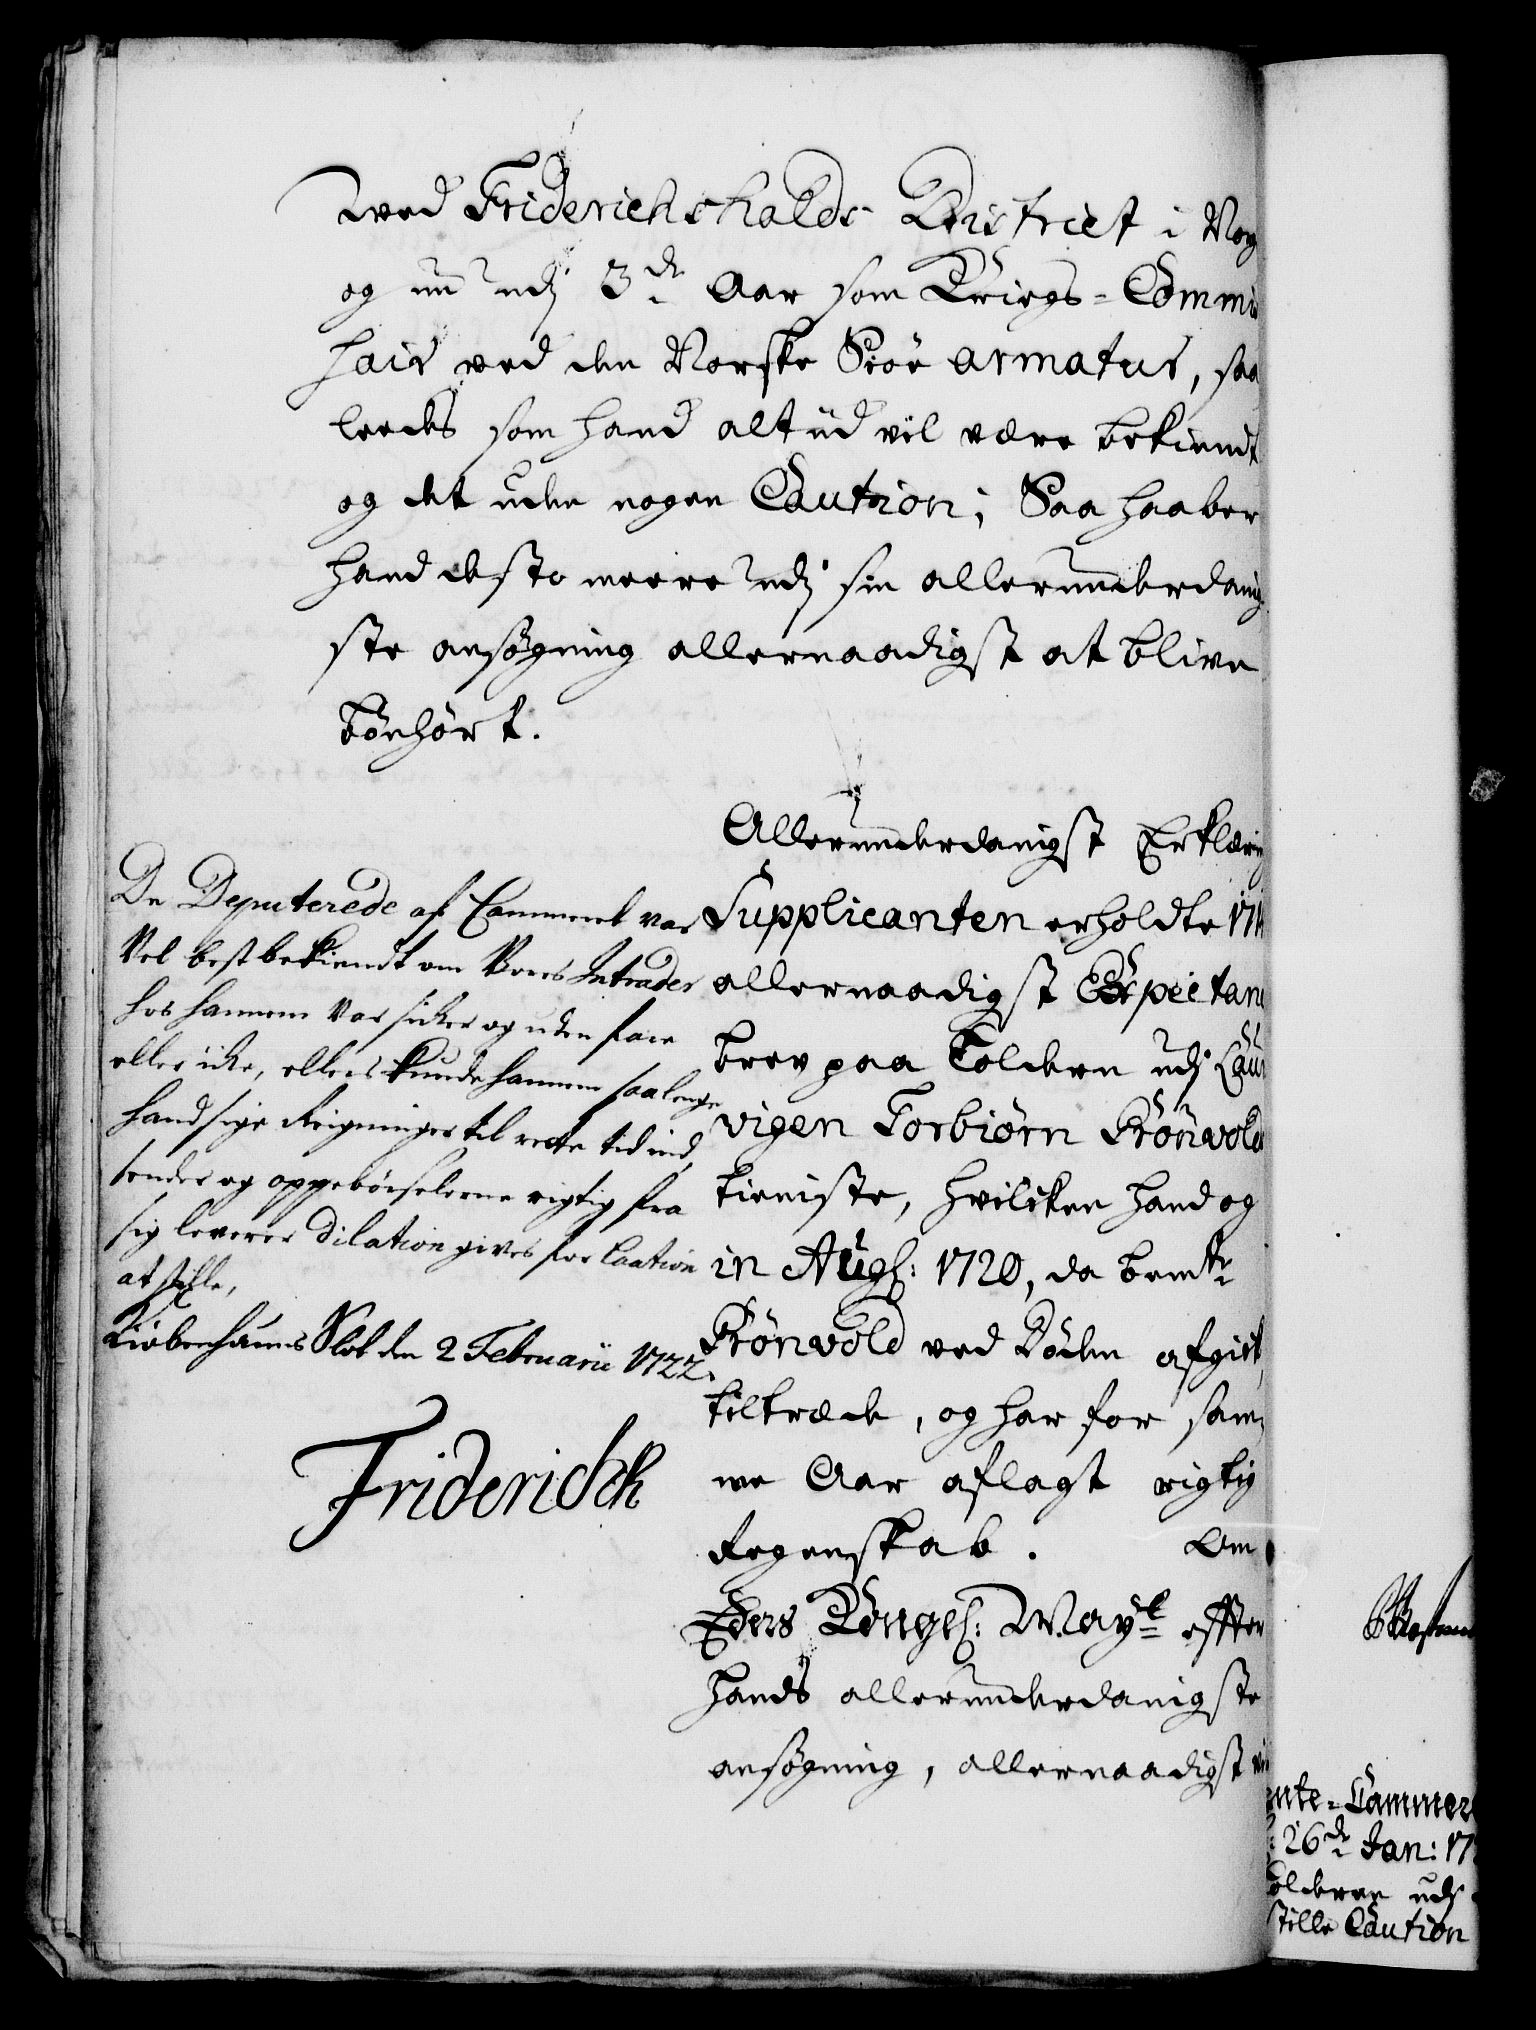 ved Friderichshalds District i Nor
og nu udj 3de Aar som Kriegs-Commi
hair ved den Norske Siøe armatur, saa
leedes som hand altiid vil være bekiendt
og det uden nogen Caution; Saa haaber
hand desto meere udj sin allerunderdanig
ste ansøgning allernaadigst at blive
bønhørt.
Allerunderdanigst Erklæring
Supplicanten erholdte 171
allernaadigst Expectanc
brev paa Tolderen udj Laur
vigen Torbiørn Grönwolds
tieniste, hvilcken hand og
in Augs: 1720, da bemte
Grönvold ved Döden afgick,
tiltræde, og har for sam,
me Aar aflagt rigtig
Regenskab. Om
Eders Kongel: Mayt efter
hands allerunderdanigste
ansøgning, allernaadigst
De Deputerede af Cammeret var
Vel best bekiendt om Vores Intrader
hos hannem var sicker og uden fare
eller icke, ellers kunde hannem saalenge
hand sige Reigninger til rette tid ind,
sender og oppebörselerne rigtig fra
sig leverer dilation gives for Caation
at stille,
Kiøbenhaufns Slot den 2 Februarii 1722.
Friderich
nte-Cammer
26de Jan: 17
olderen udj
stille Caution